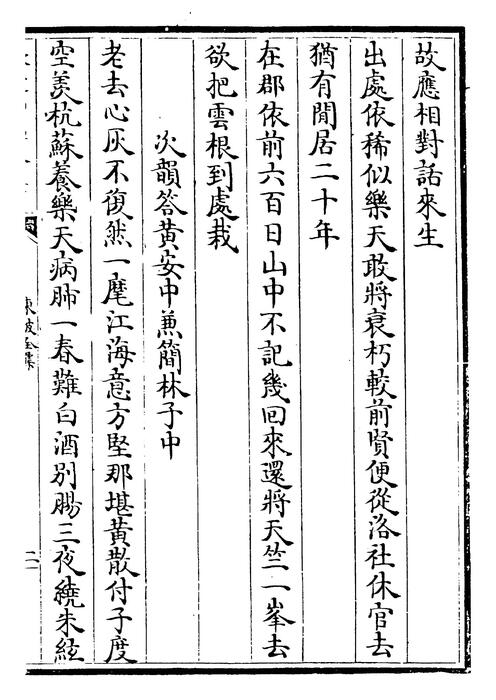 故應相對話來生
出處依稀似樂天敢將衰朽較前賢便從洛社休官去
猶有閒居二十年
在郡依前六百日山中不記幾回來還將天竺一峯去
欲把雲根到處栽
次韻答黃安中兼簡林子中
老去心灰不復然一麾江海意方堅那堪黃散付子度
空羨杭蘇養樂天病肺一春難白酒別腸三夜繞朱絃
東坡全集